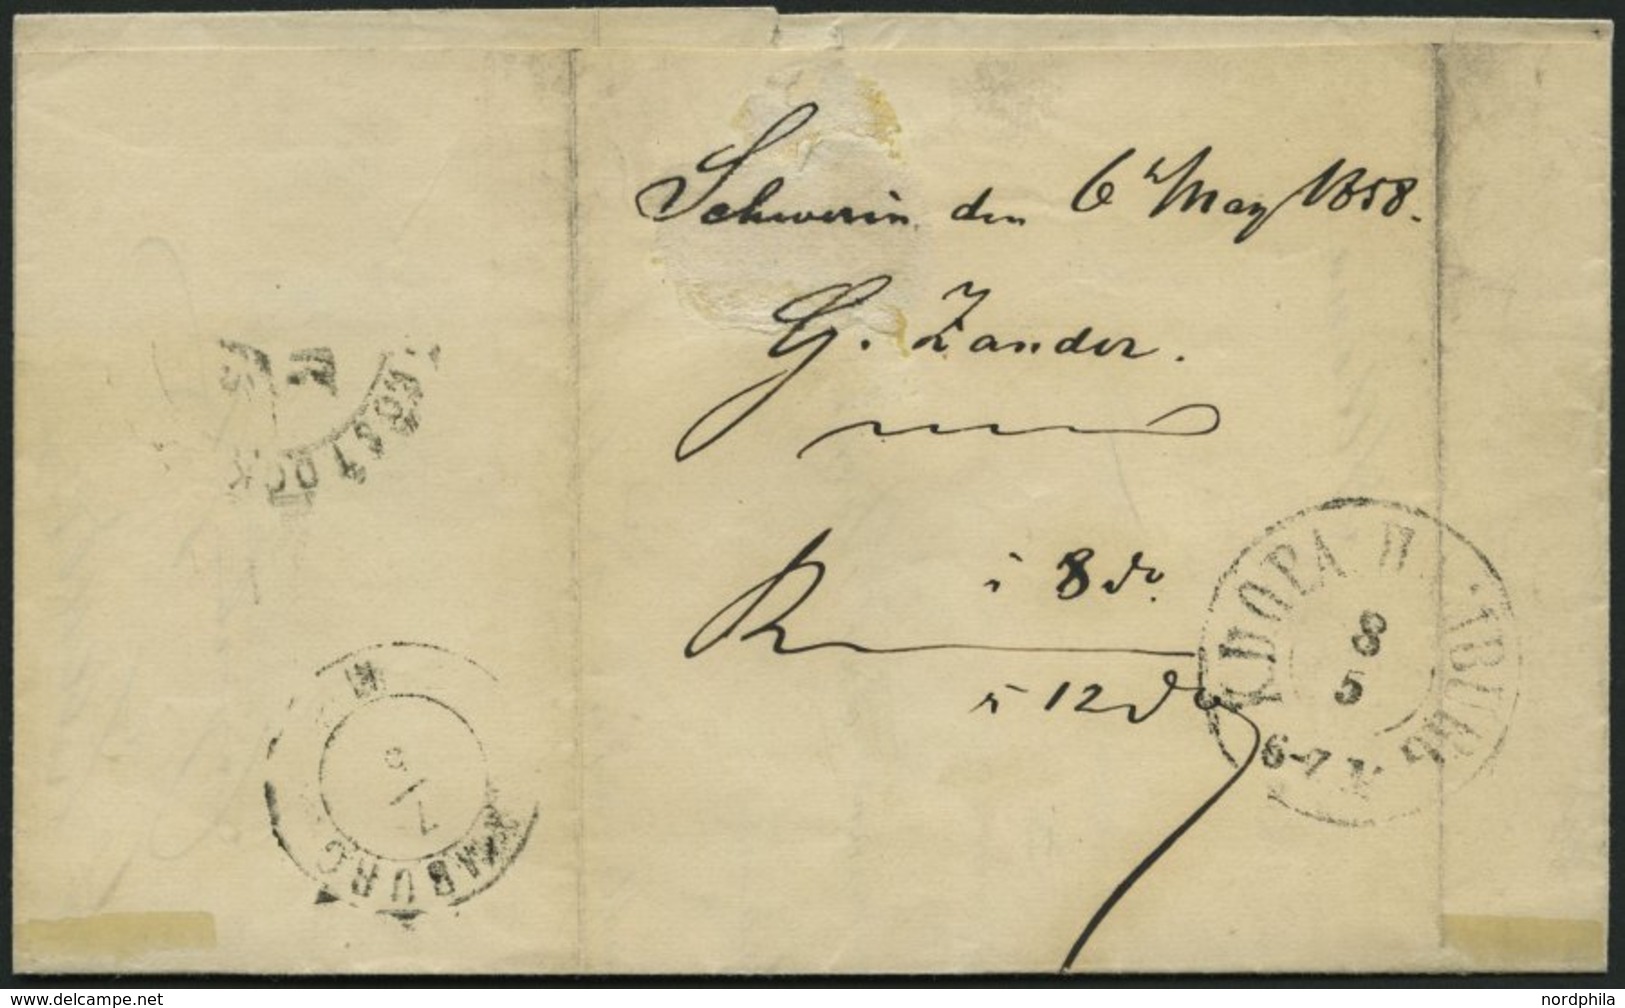 Schwerin den 6ᵗ May 1858.
G. Zander.
R
8 do.
12 do
ROSTOCK
HAMBURG
7/5
K.D.O.P.A. HAMBURG
8
5
6-7
www.delcampe.net
nordphila